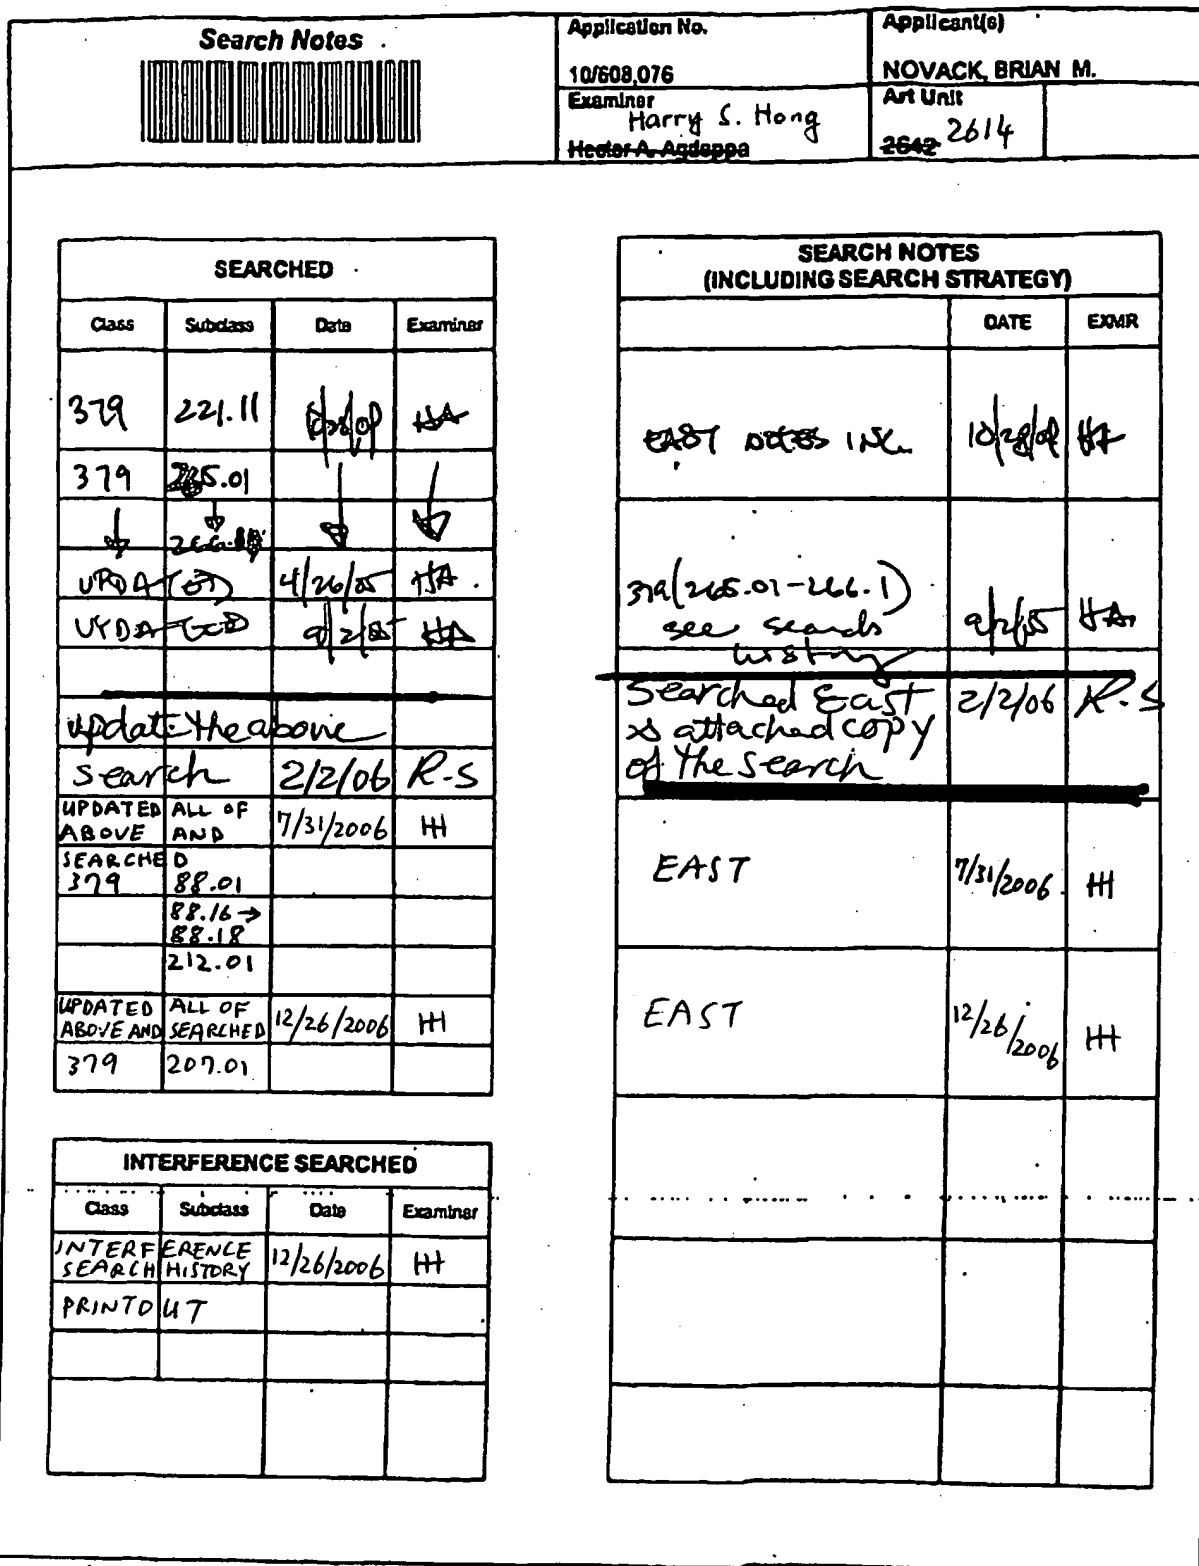 Search Notes
Application No.
10/608,076
Applicant(s)
NOVACK, BRIAN M.
Examiner
Harry S. Hong
Hector A. Agdeppa
Art Unit
2642 2614
SEARCHED
Class Subclass Date Examiner
379 221.11 HA
379 265.01
4/26/05 HA
9/2/05 HA
update the above
search 2/2/06 R-S
UPDATED ALL OF
ABOVE AND 7/31/2006 HH
SEARCHED
379 88.01
88.16 →
88.18
212.01
UPDATED ALL OF
ABOVE AND SEARCHED 12/26/2006 HH
379 207.01
INTERFERENCE SEARCHED
Class Subclass Date Examiner
INTERFERENCE
SEARCH HISTORY 12/26/2006 HH
PRINTOUT
SEARCH NOTES
(INCLUDING SEARCH STRATEGY)
DATE EXMR
EAST 10/28/04 HA
379(265.01-266.1)
see search 9/2/05 HA
history
Searched East 2/2/06 R-S
attached copy
of the search
EAST 7/31/2006 HH
EAST 12/26/2006 HH